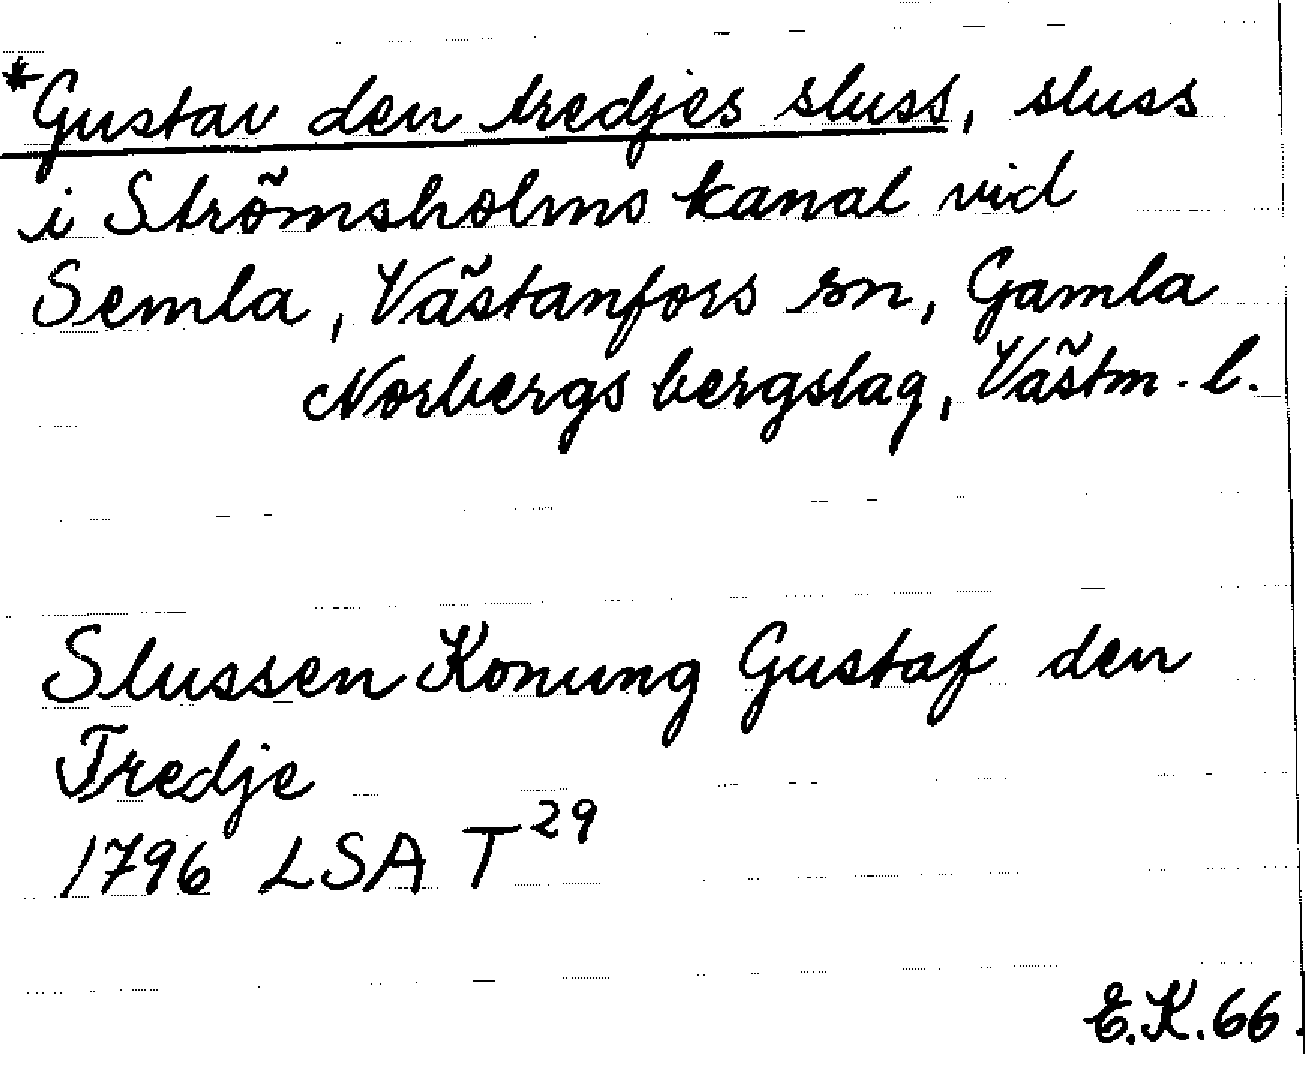 *Gustav den tredjes sluss, sluss
i Strömsholms kanal vid
Semla, Västanfors sn, Gamla
Norbergs bergslag, Västm. l.
Slussen Konung Gustaf den
Tredje
1796 LSA T 29
E.K. 66.